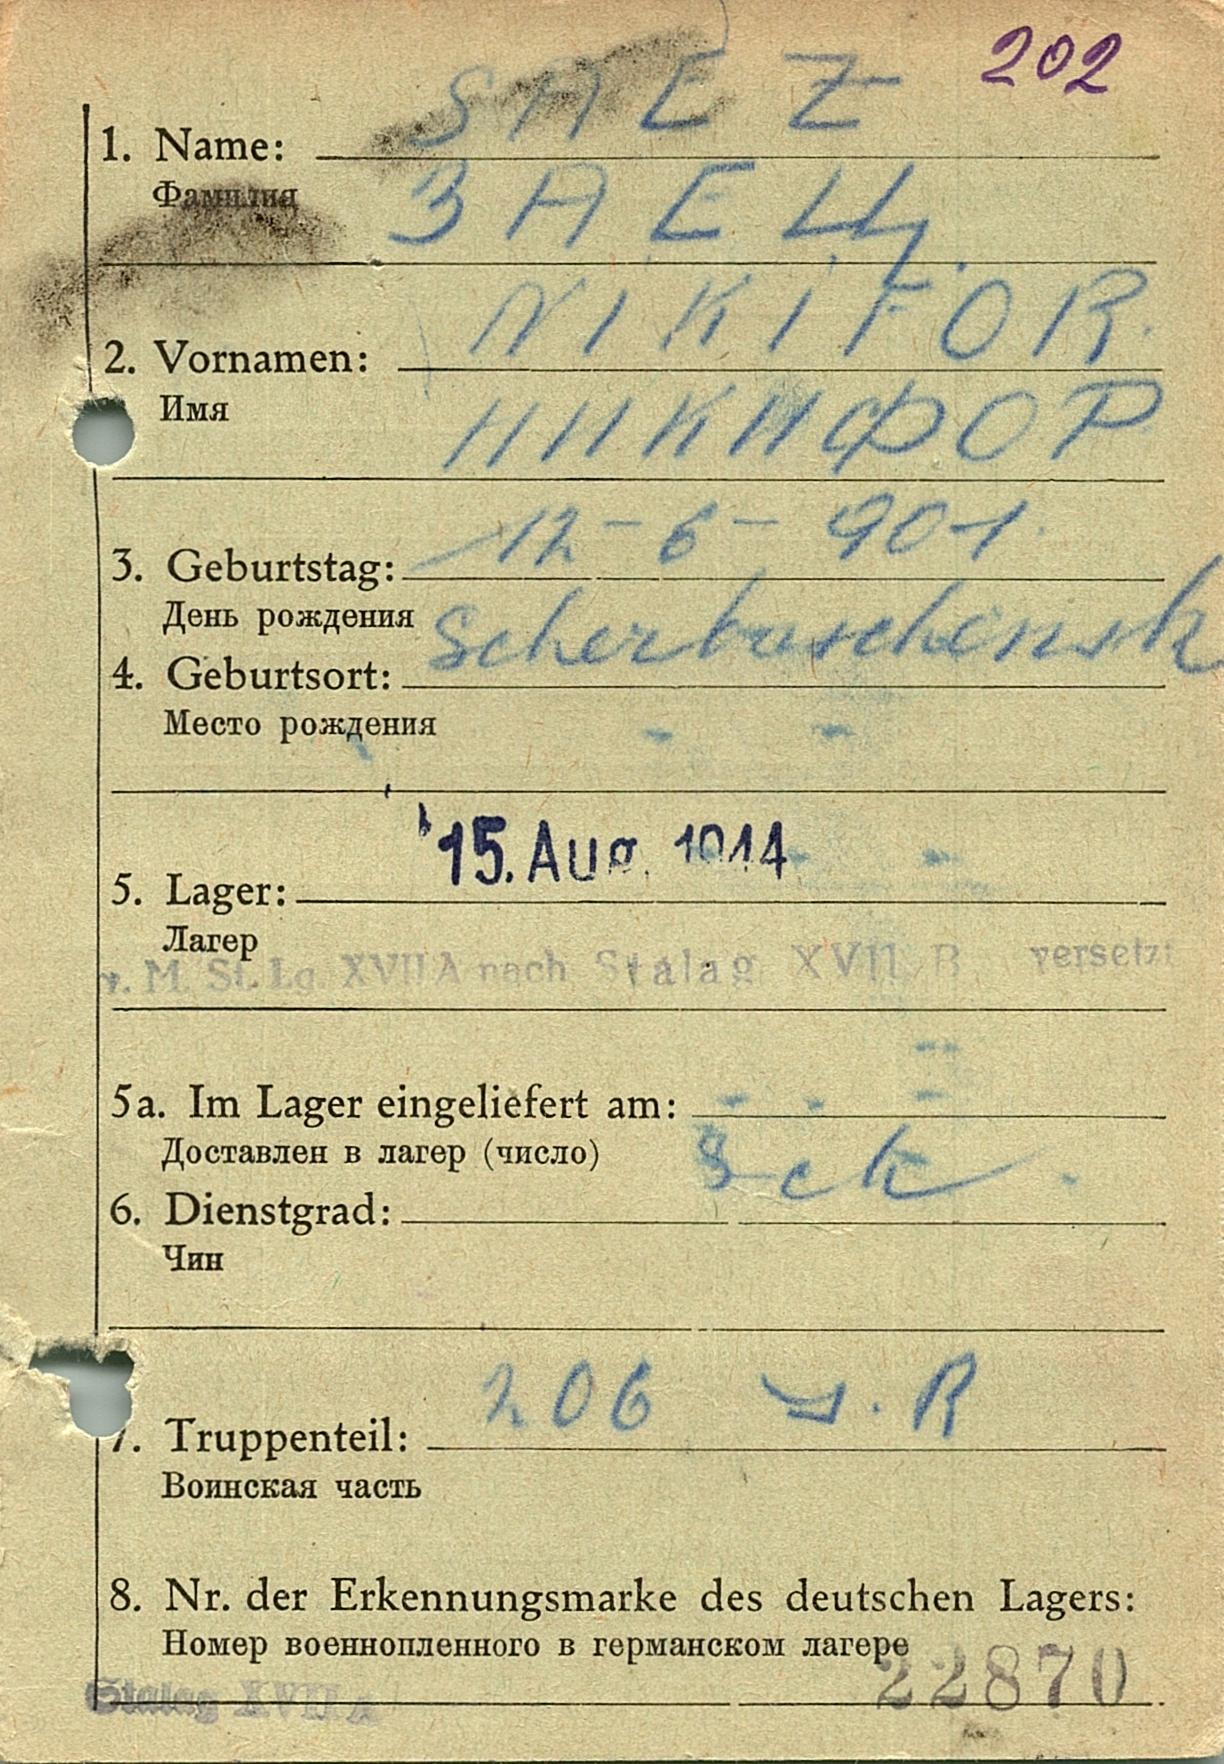 202
SAEZ
1. Name:
Фамилия
ЗАЕЦ.
NIKIFOR.
2. Vornamen:
Имя
НИКИФОР
12-6-901.
3. Geburtstag:
День рождения
Scherbaschensk
4. Geburtsort:
Место рождения
15. Aug. 1944
5. Lager:
Лагер
v. M. St. Lg. XVII A nach Stalag XVII B versetzt
5a. Im Lager eingeliefert am:
Доставлен в лагер (число)
6. Dienstgrad:
Чин
206 J.R
7. Truppenteil:
Воинская часть
8. Nr. der Erkennungsmarke des deutschen Lagers:
Номер военнопленного в германском лагере
22870
Stalag XVII A